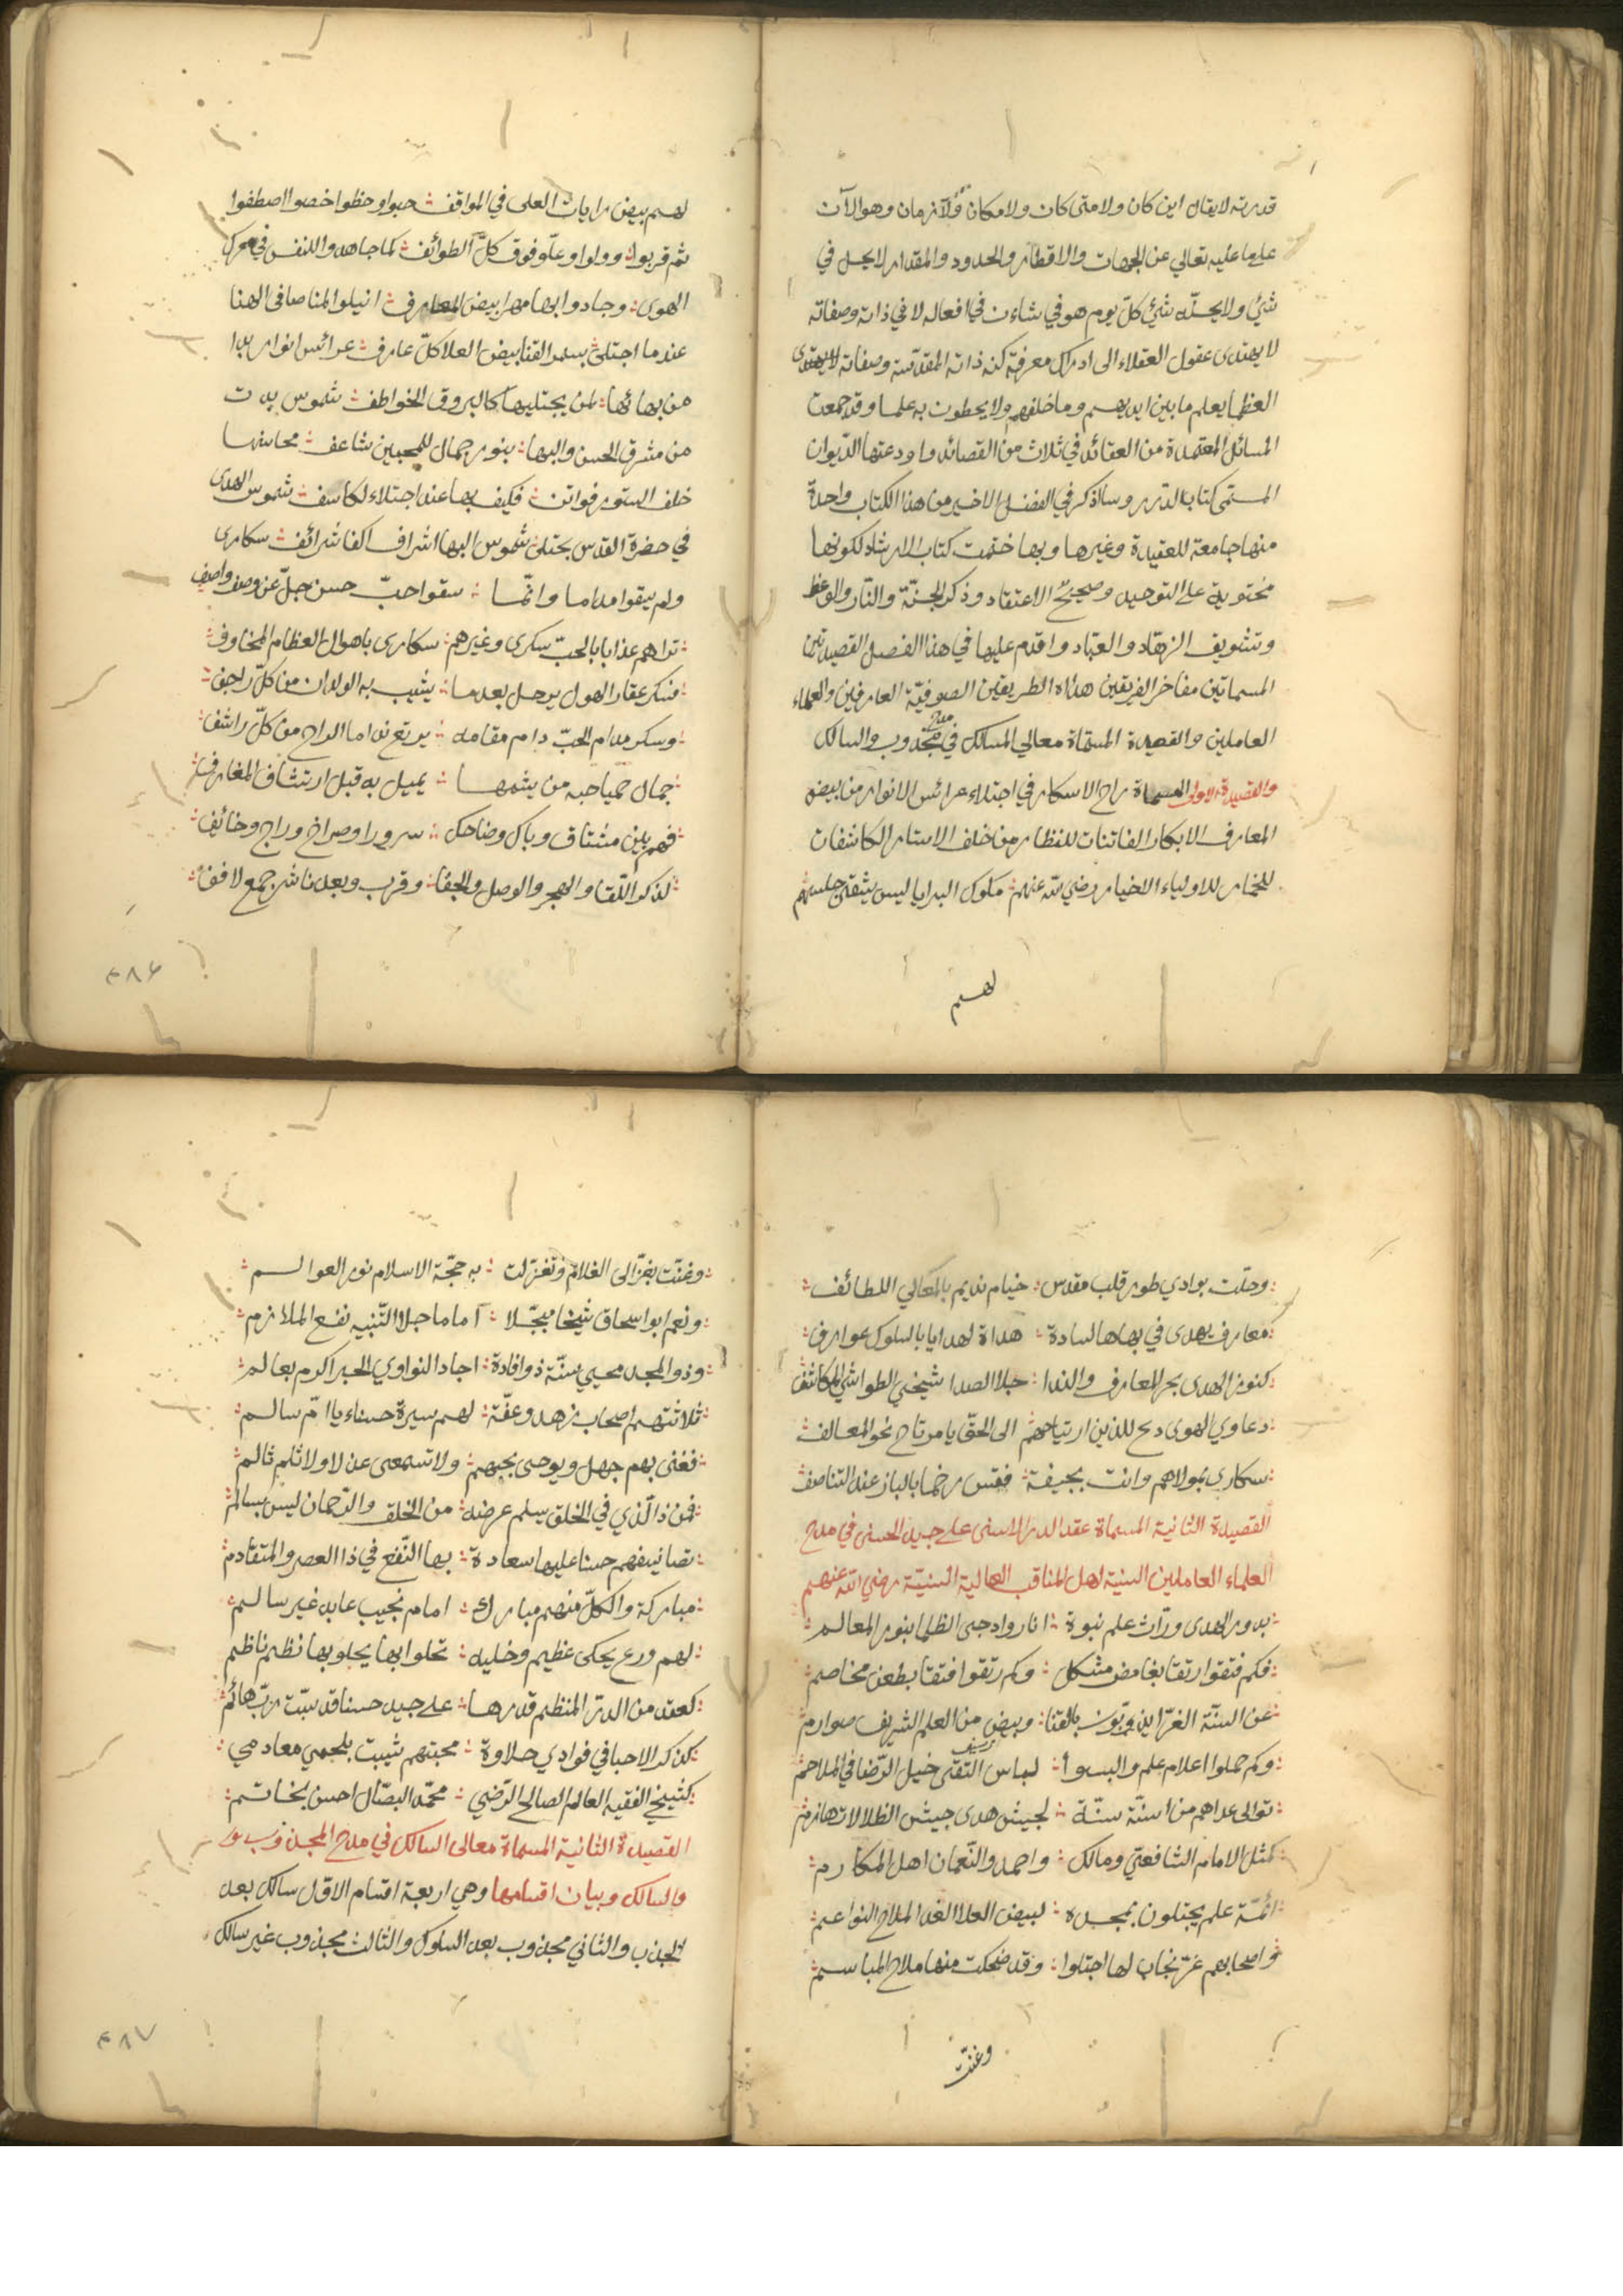 قدرته لا يقال اين كان ولا متى كان ولا مكان ولا زمان وهو الآن
على ما عليه تعالى عن الجهات والاقطار والحدود والمقدار لا يحل في
شئ ولا يحلّه شئ كلّ يوم هو في شاءن في افعاله لا في ذاته وصفاته
لا يهتدى عقول العقلاء الى ادراك معرفة كنه ذاته المقدّسة وصفاته
العظما يعلم ما بين ايديهم وما خلفهم ولا يحطون به علما وقد جمعت
المسائل المعتمدة من العقائد في ثلاث من القصائد واودعتها الديوان
المسمّى كتاب الدرر وسأذكر في الفضل الاخير من هذا الكتاب واحدة
منها جامعة للعقيدة وغيرها وبها ختمت كتاب الارشاد لكونها
محتوية على التوحيد وصحيح الاعتقاد وذكر الجنّة والنّار والوعظ
وتشويق الزهّاد والعبّاد واقدم عليها في هذا الفصل القصيدتين
المسماتين مفاخر الفريقين هداة الطريقين الصوفيّة العارفين والعلماء
العاملين والقصيدة المسمّاة معالي المسالك في مدح مجذوب والسالك
والقصيدة الاولى المسماة راح الاسكار في اجتلاء عرائس الانوار من بيض
المعارف الابكار الفاتنات للنظار من خلف الاستار الكاشفات
للخمار للاولياء الاخيار رضي الله عنهم ملوك البرايا ليس يشقى جليسهم
لهم
لهم بيض رايات العلى في المواقف حبوا وحظوا خصوا اصطفوا
ثم قربوا وولوا وعلّو فوق كلّ الطوائف كما جاهدوا للنفس في معرك
الهوى وجادوا بها مهرا بيض المعارف انيلوا المنا صافى الهنا
عندما اجتلى بسمر القنا بيض العلا كلّ عارف عرائس انوار بدا
من بهائها لمن يجتليها كالبروق الخواطف شموس بدت
من مشرق الحسن والبها بنور جمال للمحبين شاعف محاسنها
خلف الستور فواتن فكيف بها عند اجتلاء لكاسف شموس الهدى
في حضرة القدس يجتلى شموس البها اشراف الفا شرائف سكارى
ولم يبقوا مداما وانّما سقوا حبّ حسن جلّ عن وصف واصف
تراهم عذابا بالحبّ سكرى وغيرهم سكارى باهوال العظام المخاوف
فسكر عقار الهول يرحل بعد ما يشيب به الولدان من كلّ راجف
وسكر مدام الحبّ دام مقامه يرتع نداما الراح من كلّ راشف
جمال حميا حبه من يشمها يميل به قبل ارتشاف
فهم بين مشتاق وباك وضاحك سرورا وصراخ وراج وخائف
لذكر اللّقا والهجر والوصل والجفا وقرب وبعد ناشر جمع لافف
٣٨٦
وحلّت بوادي طور قلب مقدس خيام نديم بالمعالي اللطائف
معارف يهدى في بهاها لسادة هداة لهدايا بالسلوك عوارف
كنوز الهدى بحر المعارف والندا جلا الصدا شيخي الطواشي المكاشف
دعاوي الهوى دع للذين ارتياحهم الى الحقّ يا مرتاح نحو المعالف
سكارى بمولاهم وانت بجيفة فقس رخما بالباز عند التناصف
القصيدة الثانية المسماة عقد الدر الاسنى على جيد الحسنى في مدح
العلماء العاملين السنية لهل المناقب العالية السنيّة رضي الله عنهم
بدور الهدى ورّاث علم نبوة اناروا دجى الظلما بنور المعالم
فكم فتقوا رتقا بغامض مشكل وكم رتقوا فتقا بطعن مخاصم
عن السنّة الغرّا بالقنا وبيض من العلم الشريف صوارم
وكم حملوا اعلام علم والبسوا لباس التقى خيل الرّضا في الملاحم
توالى عداهم من اسنّة سنّة لجيش هدى جيش الظلالات هازم
كمثل الامام الشافعيّ ومالك واحمد والنّعمان اهل المكارم
ائمّة علم يجتلون بمجده لبيض العلا الغد الملاح النواعم
واصحابهم غرّ نجاب لها اجتلوا وقد ضحكت منها ملاح المباسم
وغنّت
وغنّت بغزّالى الغلام وتغزلت به حجّة الاسلام نور العوالم
ونعم ابو اسحاق شيخا مبجّلا اماما جلا التّنبيه نفع الملازم
وذو المجد محيي سنّة ذو افادة اجاد النواوي الحبر اكرم بعالم
ثلاثتهم اصحاب زهد وعفّة لهم سيرة حسناء يا امّ سالم
فغنى بهم جهل وبوحى بحبهم ولا تسمعى عن لا ولا ثلم ثالم
فمن ذا الّذي في الخلق يسلم عرضه من الخلق والرّحمان ليس بسالم
تصانيفهم حسنا عليها سعادة بها النّفع في ذا العصر والمتقادم
مباركة والكلّ منهم مبارك امام نجيب عابد غير سالم
لهم ورع يحكى عظيم وحليه تحلوا بها يحلو بها نظم ناظم
كعقد من الدرّ المنظم قدرها على جيد حسنا قد سبّت ربّ هائم
كذكر الاحبا في فوادي حلاوة محبتهم شيبت بلحمي معا دمي
كشيخي الفقيه العالم الصالح الرّضي محمّد البصّال احسن بخاتم
القصيدة الثانية المسماة معالى السالك في مدح المجذوب
والسالك وبيان اقسامها وهي اربعة اقسام الاوّل سالك بعد
الجذب والثاني مجذوب بعد السلوك والثالث مجذوب غير سالك
٣٨٧